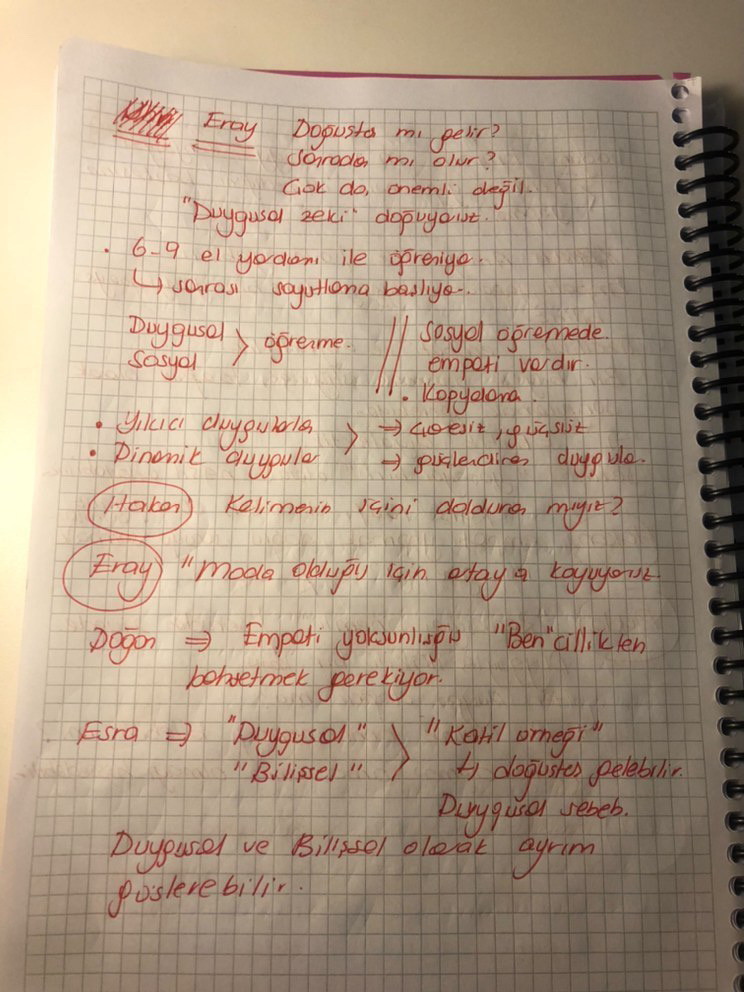 Eray Doğuştan mı gelir?
sonradan mı olur?
Çok da önemli değil.
"Duygusal zeki" doğuyoruz.
• 6-9 el yordamı ile öğreniyor.
↳ sonrası soyutlama başlıyor.
Duygusal
Sosyal > öğrenme.
// sosyal öğrenmede
empati vardır.
• Kopyalama.
• Yıkıcı duygularla > → çaresiz, güçsüz
• Dinamik duygular → güçlendiren duygular.
Hakan Kelimenin içini doldurar mıyız?
Eray "Moda olduğu için ortaya koyuyoruz.
Doğan ⇒ Empati yoksunluğu "Ben"cillikten
bahsetmek gerekiyor.
Esra ⇒ "Duygusal" > "Katil örneği"
"Bilişsel" ↳ doğuştan gelebilir.
Duygusal sebeb.
Duygusal ve Bilişsel olarak ayrım
gösterebilir.